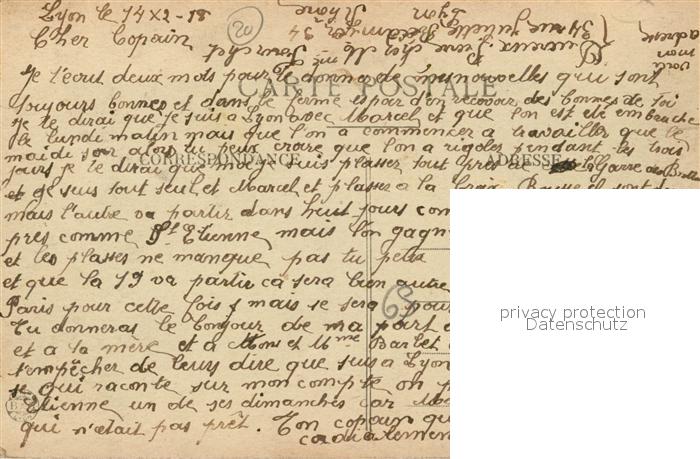 Lyon le 14 X2 - 18
20
Cher Copain
voila
mon
adresse
Lyon Rhone
Je t'ecrit deux mots pour te donner de mes nouvelles qui sont
CARTE POSTALE
toujours bonnes et dans le ferme espoir d'en recevoir des bonnes de toi
je te dirai que je suis a Lyon avec Marcel et que l'on est ete embauche
le lundi matin mais que l'on a commencer a travailler que le
mardi soir alors tu peux croire que l'on a rigoler pendant les trois
CORRESPONDANCE
ADRESSE
jours je te dirai que moi je suis plasser tout pres de la Garre des
et je suis tout seul et Marcel et plasser a la Croix Rousse
mais l'autre va partir dans huit jours
pres comme St Etienne mais l'on gagn
et les plasses ne manque pas tu peux
et que la 19 va partir ca sera bien autre
69
Paris pour cette fois mais se sera pour
Tu donneras le bonjour de ma part
et a ta mère et a Mons et Mme Barlet
t'empêcher de leurs dire que suis a Lyon
se qui raconte sur mon compte on
etienne un de ses dimanches car
qui n'était pas prêt. Ton copain qu
cordialemen
privacy protection
Datenschutz